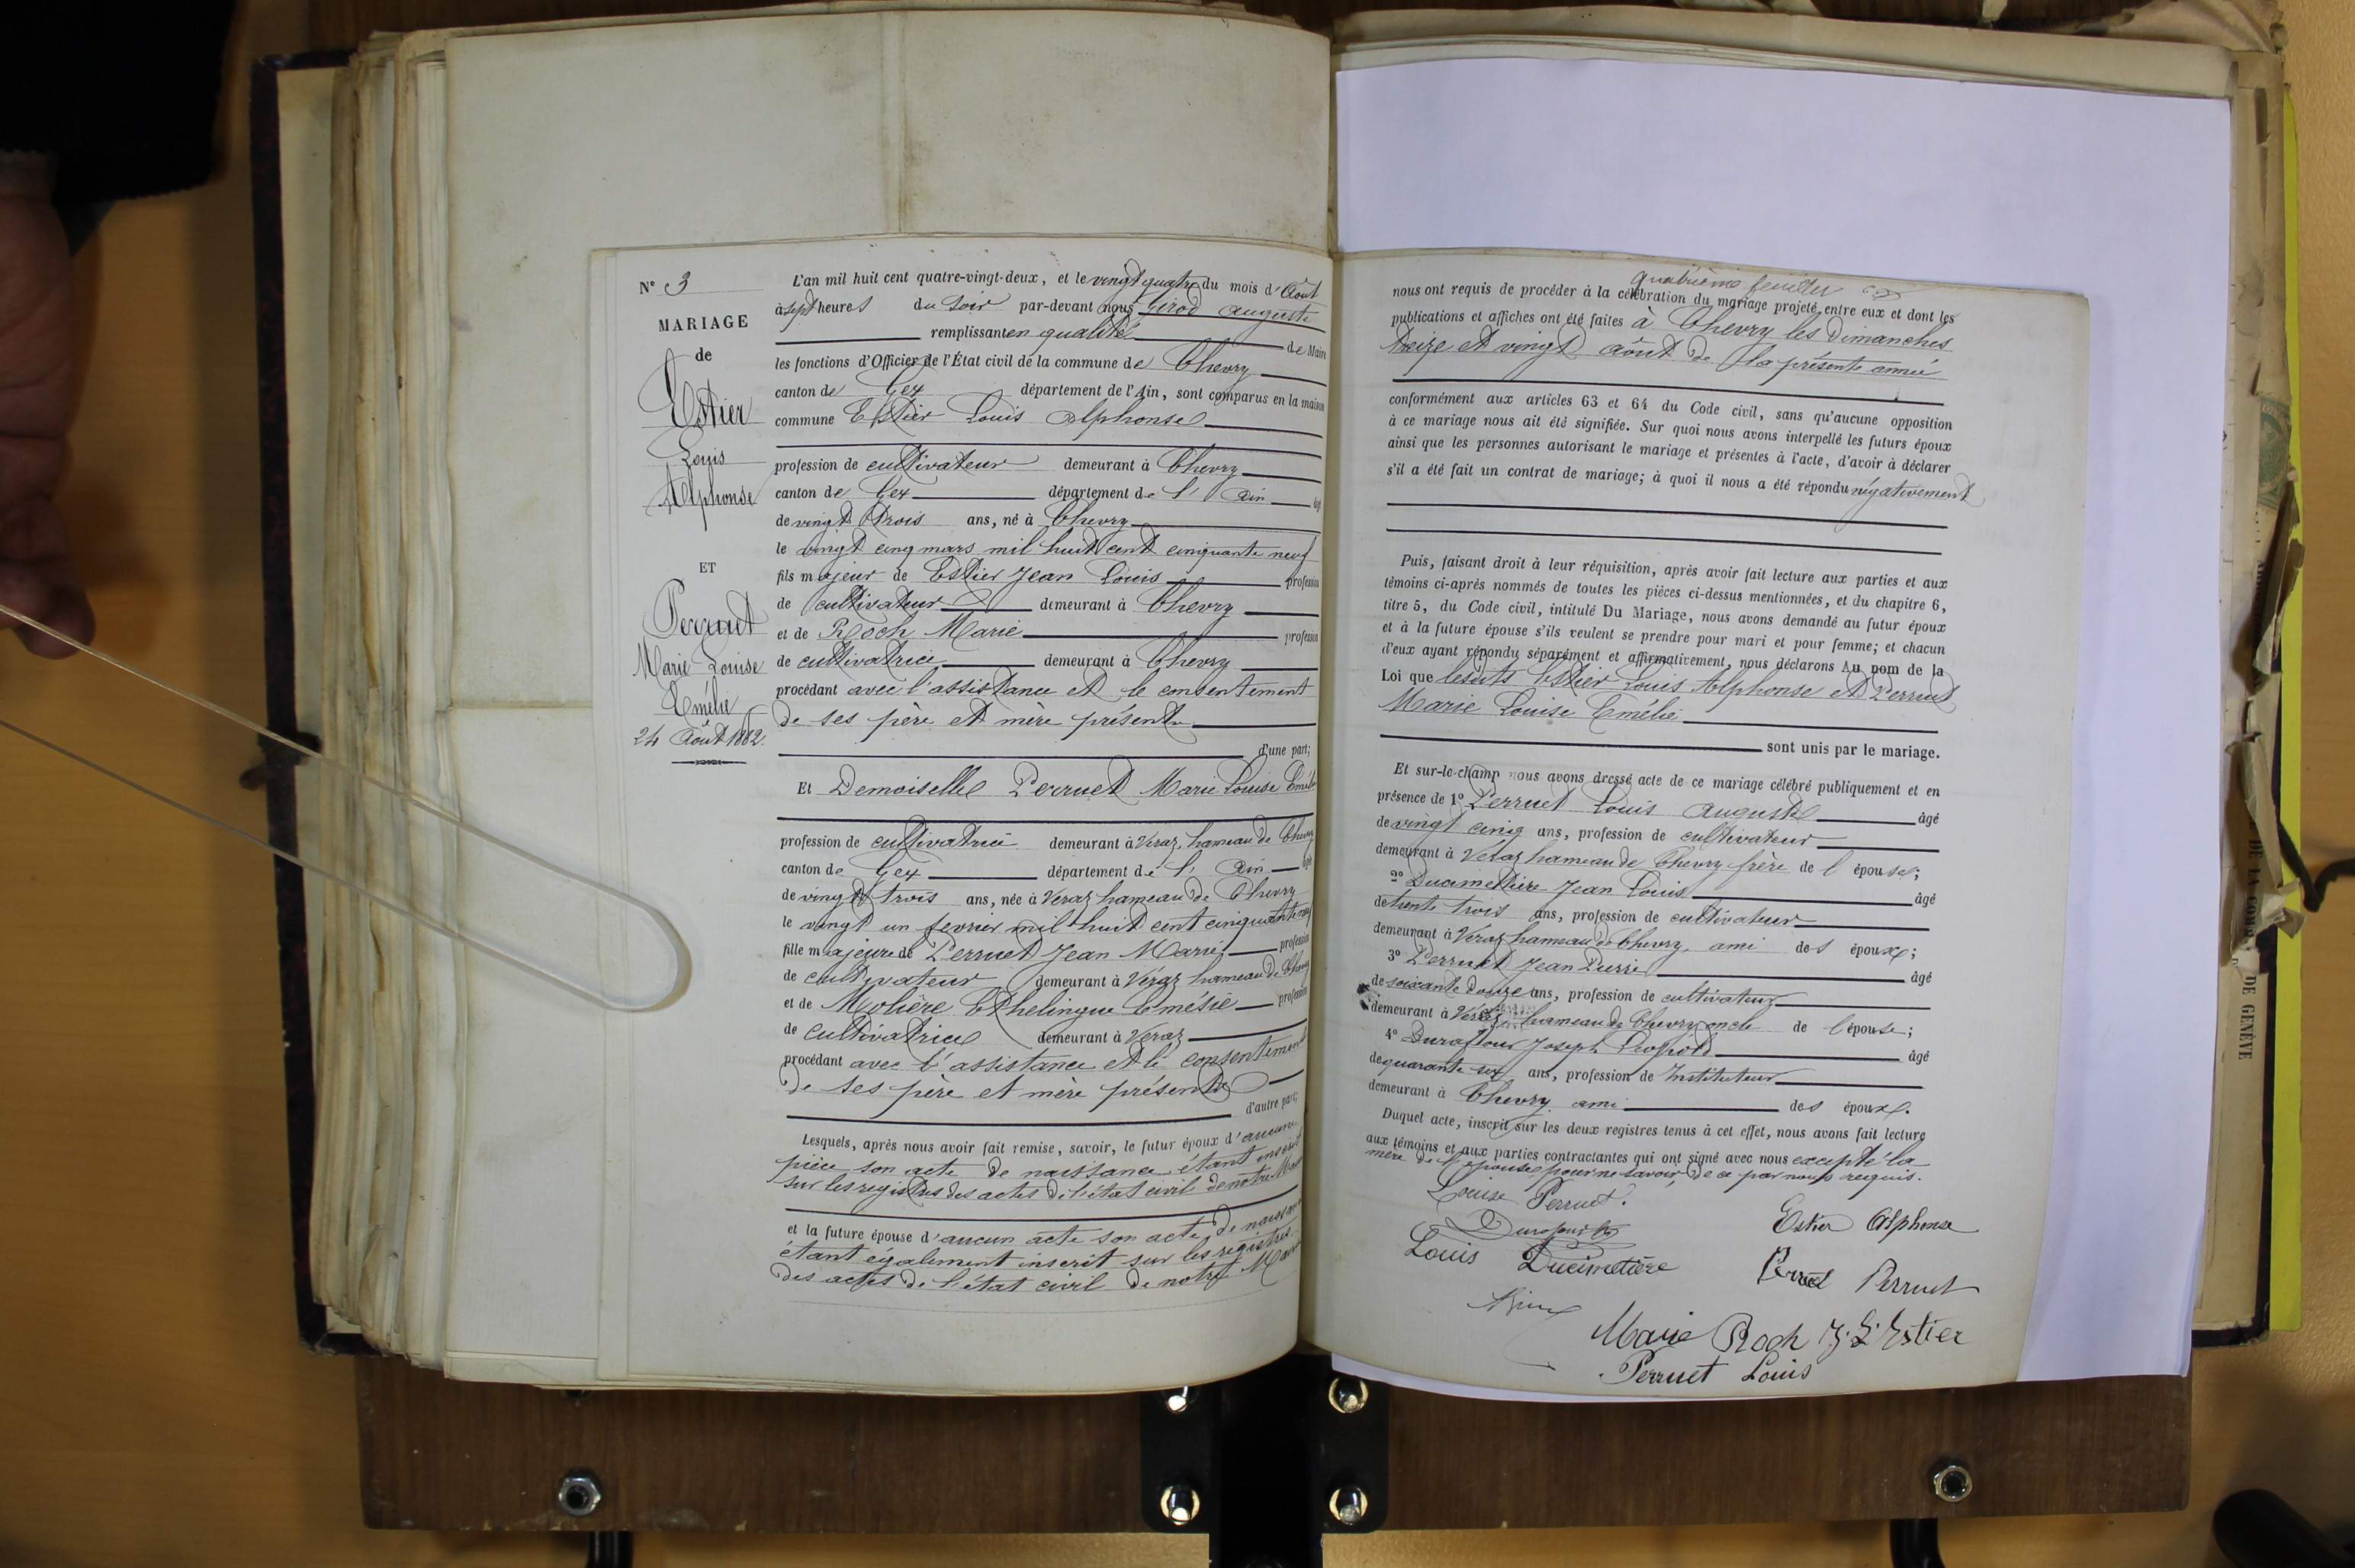 N° 3
MARIAGE
de
Estier
Louis
Alphonse
ET
Perruet
Marie Louise
Emélie
24 Août 1882.
L'an mil huit cent quatre-vingt-deux, et le vingt quatre du mois d'Août
à sept heures du soir par-devant nous Girod auguste
remplissant en qualité de Maire
les fonctions d'Officier de l'État civil de la commune de Chevry
canton de Gex département de l'Ain, sont comparus en la maison
commune Estier Louis Alphonse
profession de cultivateur demeurant à Chevry
canton de Gex département de l'Ain âgé
de vingt trois ans, né à Chevry
le vingt cinq mars mil huit cent cinquante neuf
fils majeur de Estier Jean Louis profession
de cultivateur demeurant à Chevry
et de Roch Marie profession
de cultivatrice demeurant à Chevry
procédant avec l'assistance et le consentement
de ses père et mère présents
d'une part;
Et Demoiselle Perruet Marie Louise Emélie
profession de cultivatrice demeurant à Véraz, hameau de Chevry
canton de Gex département de l'Ain âgée
de vingt trois ans, née à Véraz hameau de Chevry
le vingt un fevrier mil huit cent cinquante neuf
fille majeure de Perruet Jean Marie profession
de cultivateur demeurant à Véraz hameau de Chevry
et de Molière Ethelingue Emésie profession
de cultivatrice demeurant à Véraz
procédant avec l'assistance et le consentement
de ses père et mère présents
d'autre part;
Lesquels, après nous avoir fait remise, savoir, le futur époux d'aucune
pièce son acte de naissance étant inscrit
sur les registres des actes de l'état civil de notre
et la future épouse d'aucun acte son acte de naissance
étant également inscrit sur les registres
des actes de l'état civil de notre
quatrième feuillet
nous ont requis de procéder à la célébration du mariage projeté entre eux et dont les
publications et affiches ont été faites à Chevry les Dimanches
treize et vingt août de la présente année
conformément aux articles 63 et 64 du Code civil, sans qu'aucune opposition
à ce mariage nous ait été signifiée. Sur quoi nous avons interpellé les futurs époux
ainsi que les personnes autorisant le mariage et présentes à l'acte, d'avoir à déclarer
s'il a été fait un contrat de mariage; à quoi il nous a été répondu négativement
Puis, faisant droit à leur réquisition, après avoir fait lecture aux parties et aux
témoins ci-après nommés de toutes les pièces ci-dessus mentionnées, et du chapitre 6,
titre 5, du Code civil, intitulé Du Mariage, nous avons demandé au futur époux
et à la future épouse s'ils veulent se prendre pour mari et pour femme; et chacun
d'eux ayant répondu séparément et affirmativement, nous déclarons Au nom de la
Loi que lesdits Estier Louis Alphonse et Perruet
Marie Louise Emélie
sont unis par le mariage.
Et sur-le-champ nous avons dressé acte de ce mariage célébré publiquement et en
présence de 1° Perruet Louis auguste âgé
de vingt cinq ans, profession de cultivateur
demeurant à Véraz hameau de Chevry frère de l'épouse;
2° Ducimetière Jean Louis âgé
de trente trois ans, profession de cultivateur
demeurant à Véraz hameau de Chevry, ami des époux;
3° Perruet Jean Pierre âgé
de soixante douze ans, profession de cultivateur
demeurant à Véraz hameau de Chevry oncle de l'épouse;
4° Durafour Joseph Léopold âgé
de quarante six ans, profession de Instituteur
demeurant à Chevry ami des époux.
Duquel acte, inscrit sur les deux registres tenus à cet effet, nous avons fait lecture
aux témoins et aux parties contractantes qui ont signé avec nous excepté la
mère de l'épouse pour ne savoir, de ce par nous requis.
Louise Perruet.
Durafour
Estier Alphonse
Louis Ducimetière
Perruet Perruet
Marie Roch J. L. Estier
Perruet Louis
DE GENÈVE